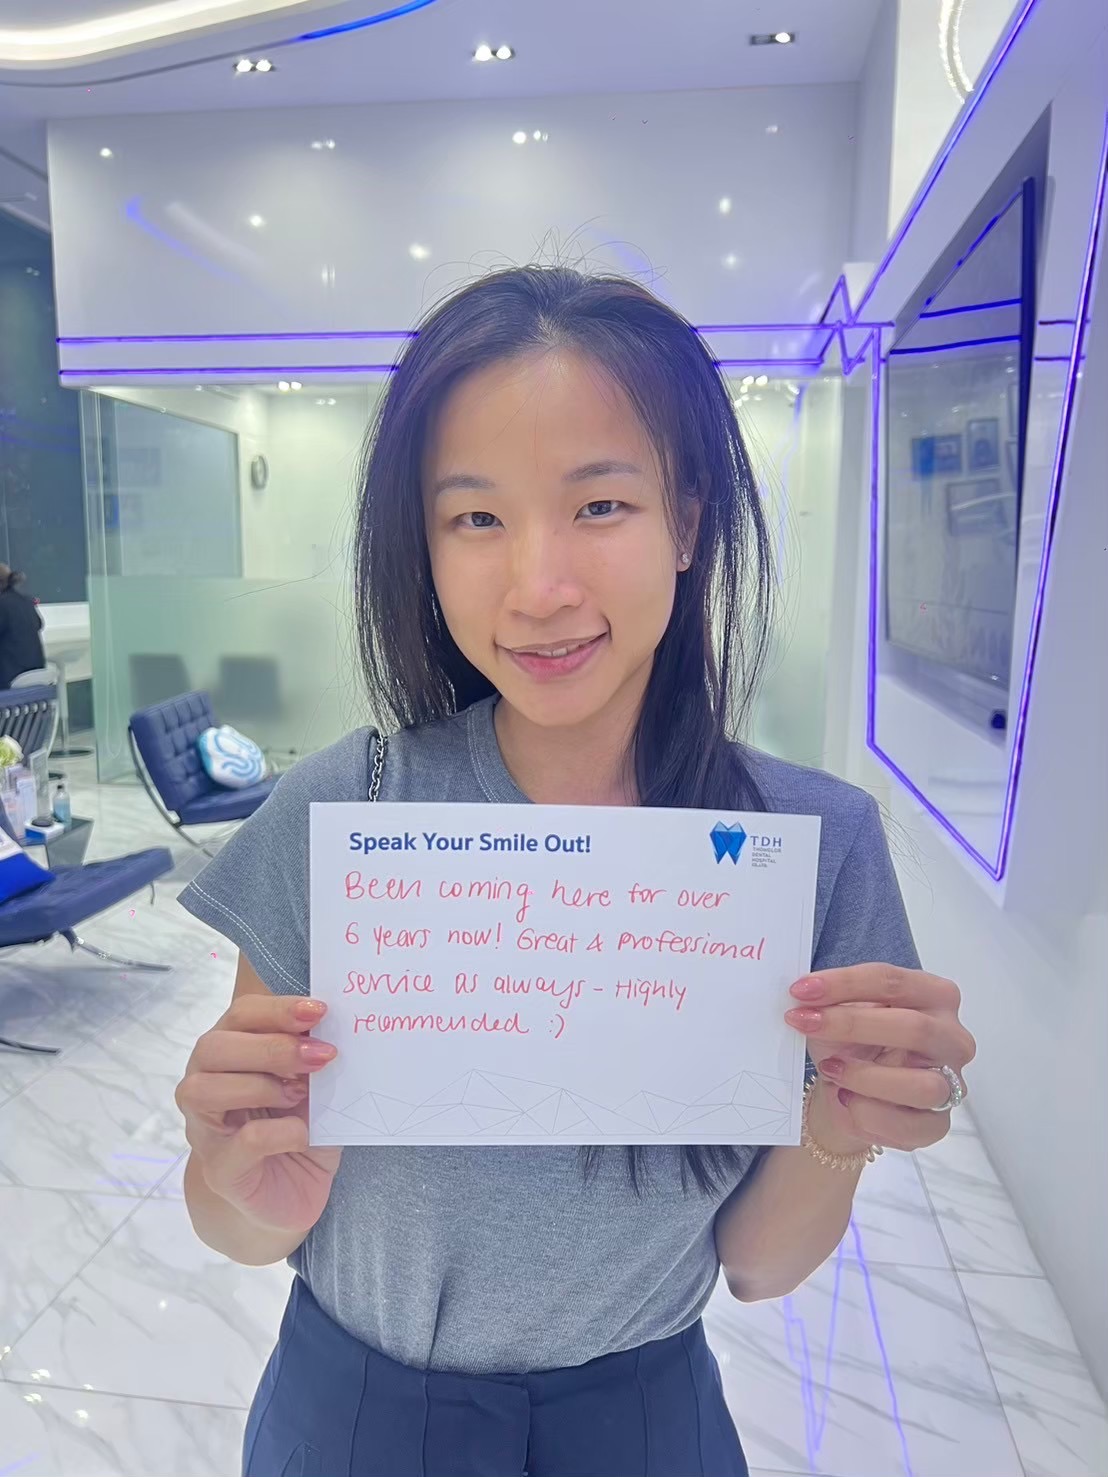 Speak Your Smile Out!
TDH
THONGLOR
DENTAL
HOSPITAL
CO.,LTD.
Been coming here for over
6 years now! Great & Professional
service as always - Highly
recommended :)